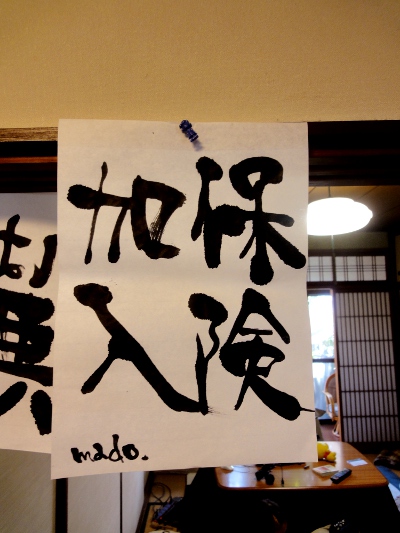 保険
加入
mado.